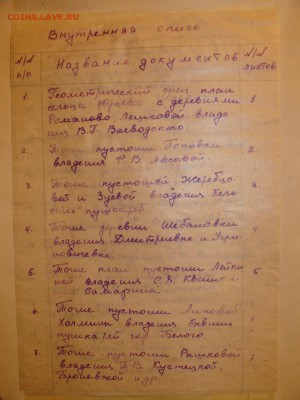 COINS.LAVE.RU
Внутренняя опись
№/№ п/п Название документов №/№ листов
1. Геометрический спец. план
сельца с деревнями 1
Романово, Лешковой владе
ния В.Г. Воеводского
2. Тоже пустоши Поповки 2
владения Ф.В.
3. Тоже пустошей Жеребцо
вой и Зуевой владения Бело 3
пушкарей
4. Тоже деревни Шебановки 4
владения Дмитриевна и
5. Тоже план пустоши 5
ней владения С.Я.
Самарина
6. Тоже пустоши Липовой
Холмина владения бывших 6
пушкарей гор. Белого.
7. Тоже пустоши Рашковой
владения П.В. Кустецкой, 7
и др.